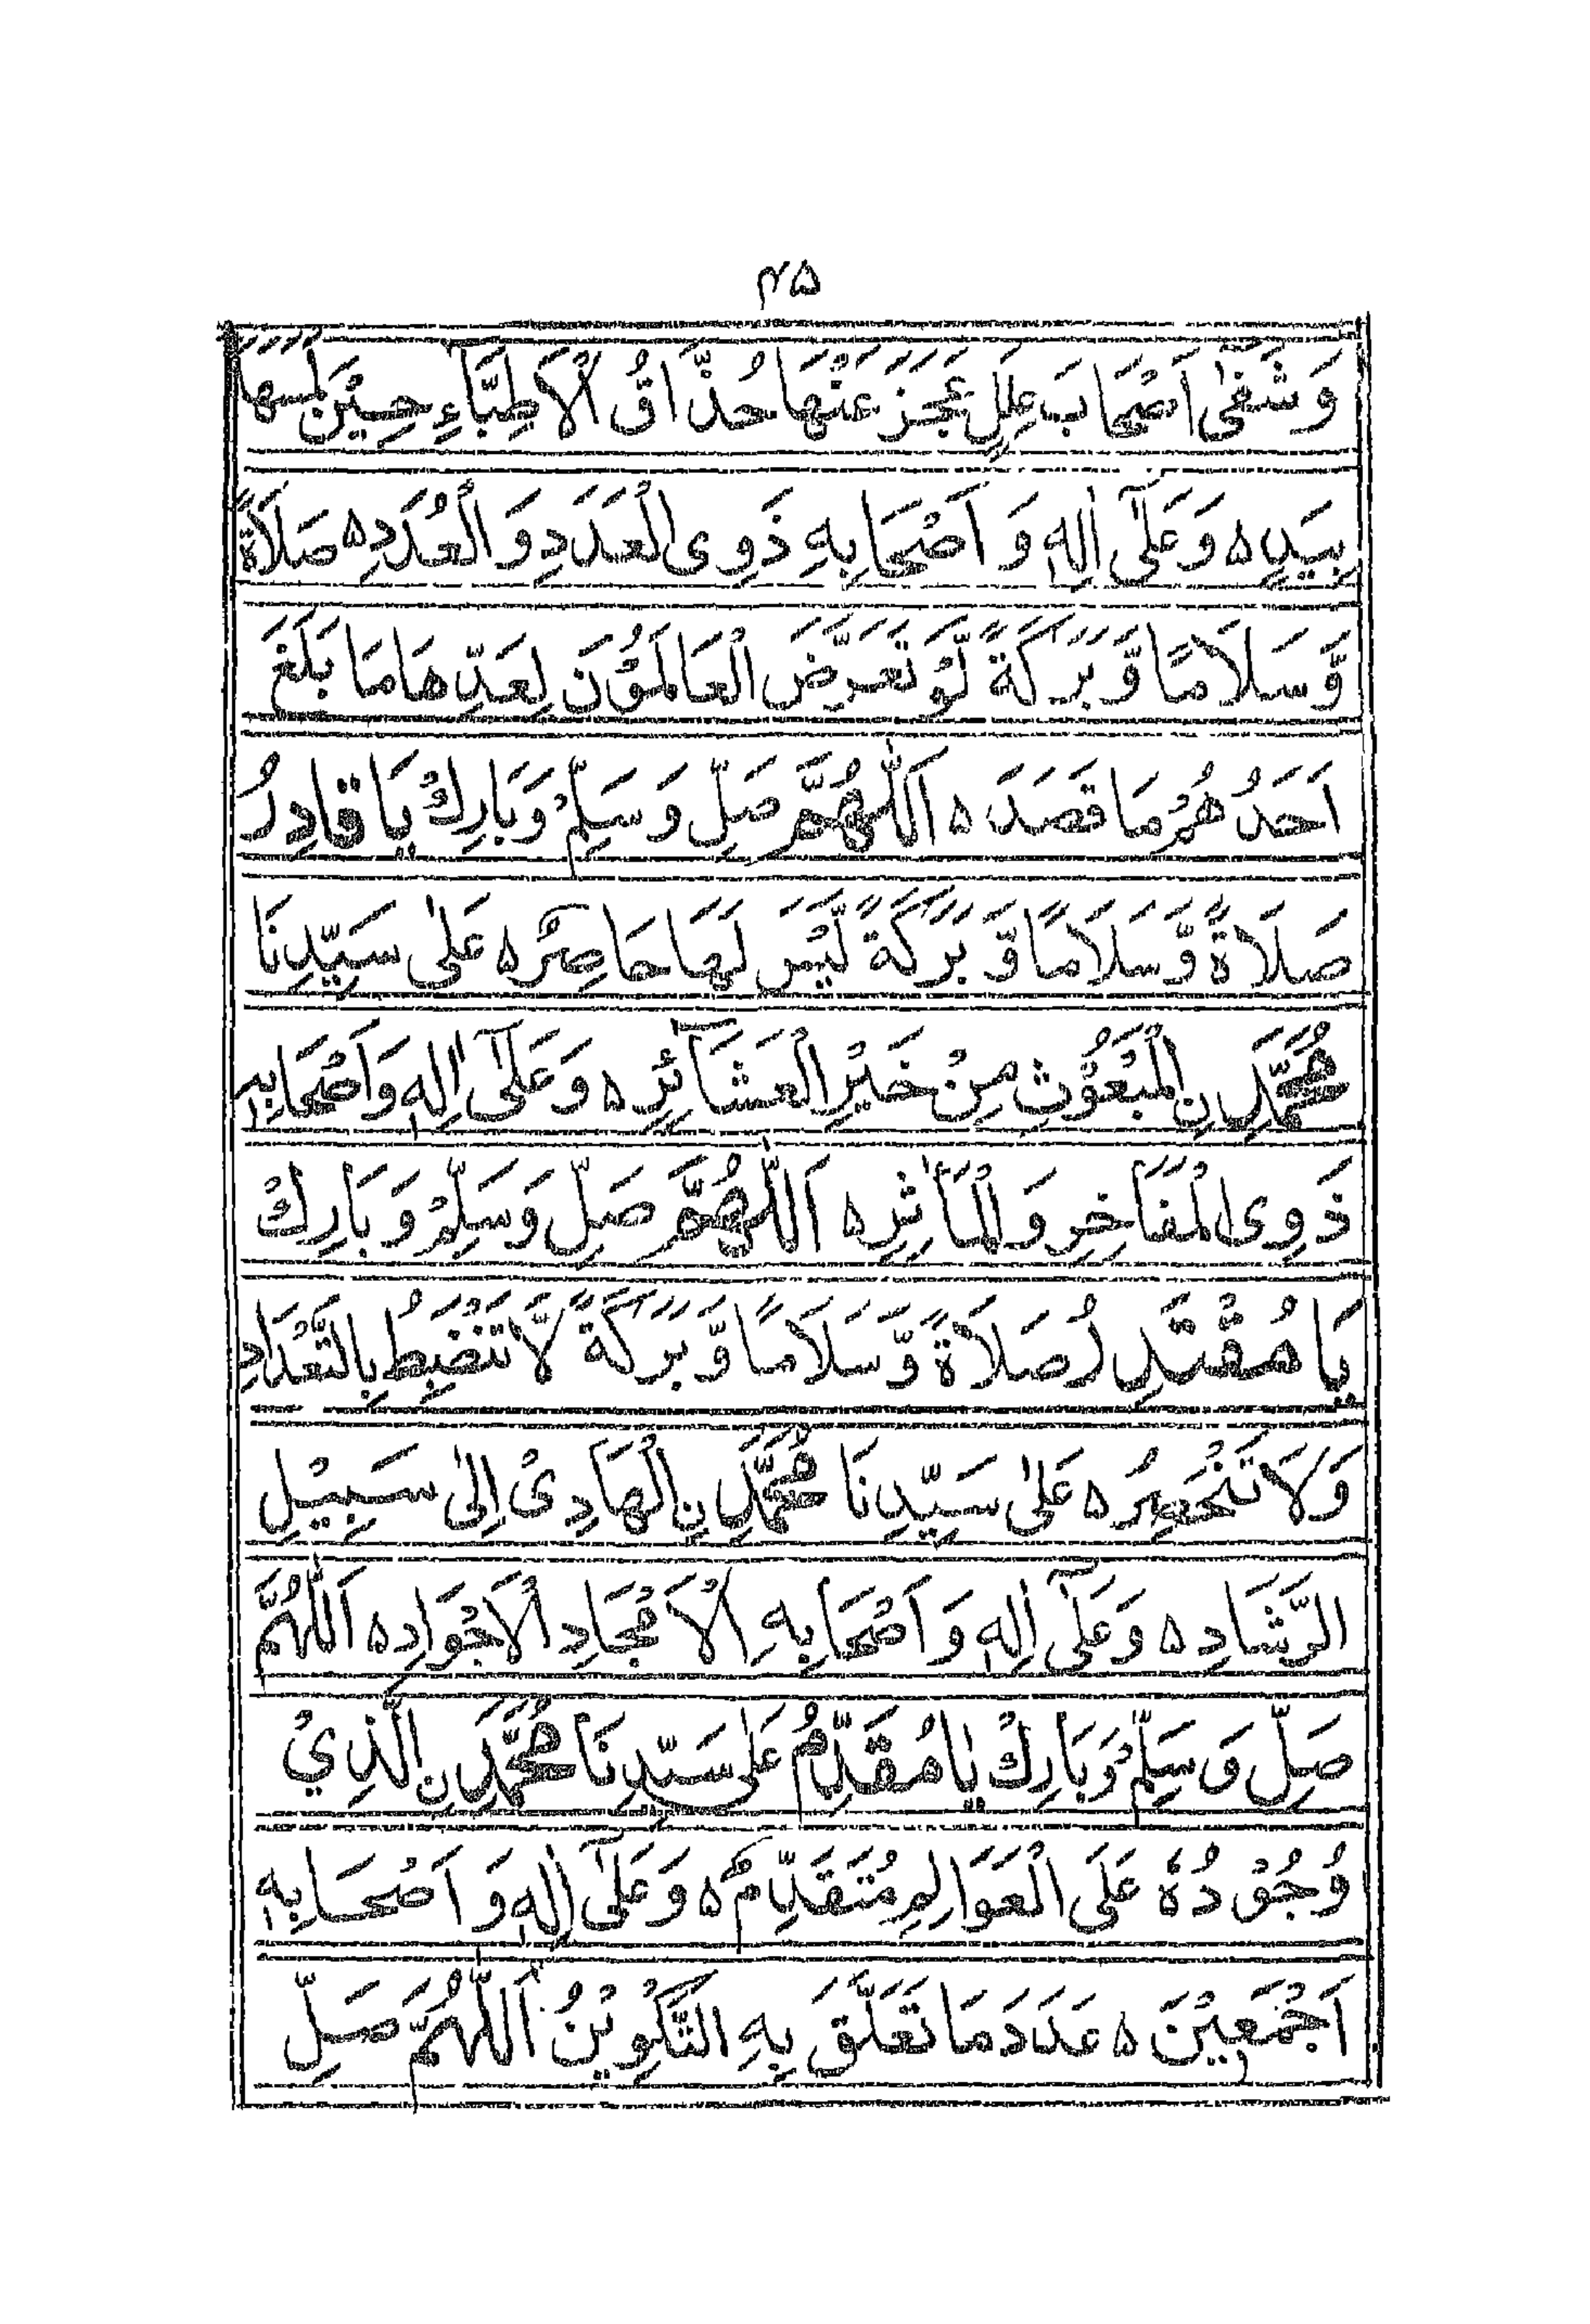 ۲۵
وَشَفٰى اَصْحَابَ عِلَلٍ عَجَزَ عَنْهَا حُذَّاقُ الْاَطِبَّآءِ حِيْنَ لَمَسَهَا
بِيَدِهٖ ه وَعَلٰٓى اٰلِهٖ وَ اَصْحَابِهٖ ذَوِى الْعَدَدِ وَ الْعُدَدِ ه صَلَاةً
وَّ سَلَامًا وَّ بَرَكَةً لَّوْ تَعَرَّضَ الْعَالَمُوْنَ لِعَدِّ هَا مَا بَلَغَ
اَحَدُ هُمْ مَا قَصَدَ ه اَللّٰهُمَّ صَلِّ وَ سَلِّمْ وَ بَارِكْ يَا قَادِرُ
صَلَاةً وَّ سَلَامًا وَّ بَرَكَةً لَّيْسَ لَهَا حَاصِرٌ ه عَلٰى سَيِّدِنَا
مُحَمَّدِ نِ الْمَبْعُوْثِ مِنْ خَيْرِ الْعَشَآئِرِ ه وَ عَلٰٓى اٰلِهٖ وَاَصْحَابِهٖ
ذَوِى الْمَفَاخِرِ وَ الْمَاٰثِرِ ه اَللّٰهُمَّ صَلِّ وَ سَلِّمْ وَ بَارِكْ
يَا مُقْتَدِرُ صَلَاةً وَّ سَلَامًا وَّ بَرَكَةً لَّا تَنْضَبِطُ بِالتَّعْدَادِ
وَلَا تَنْحَصِرُ ه عَلٰى سَيِّدِنَا مُحَمَّدِ نِ الْهَادِىْ اِلٰى سَبِيْلِ
الرَّشَادِ ه وَ عَلٰٓى اٰلِهٖ وَ اَصْحَابِهِ الْاَمْجَادِ الْاَجْوَادِ ه اَللّٰهُمَّ
صَلِّ وَ سَلِّمْ وَ بَارِكْ يَا مُقَدِّمُ عَلٰى سَيِّدِنَا مُحَمَّدِ نِ الَّذِيْ
وُجُوْدُهٗ عَلَى الْعَوَالِمِ مُتَقَدِّمٌ ه وَ عَلٰٓى اٰلِهٖ وَ اَصْحَابِهٖ
اَجْمَعِيْنَ ه عَدَدَ مَا تَعَلَّقَ بِهِ التَّكْوِيْنُ اَللّٰهُمَّ صَلِّ